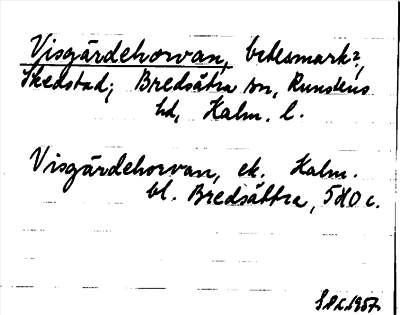 Visgärdehorvan, betesmark?,
Skedstad; Bredsätra sn, Runstens
hd, Kalm. l.
Visgärdehorvan, ek. Kalm.
bl. Bredsättra, 580 c.
1957